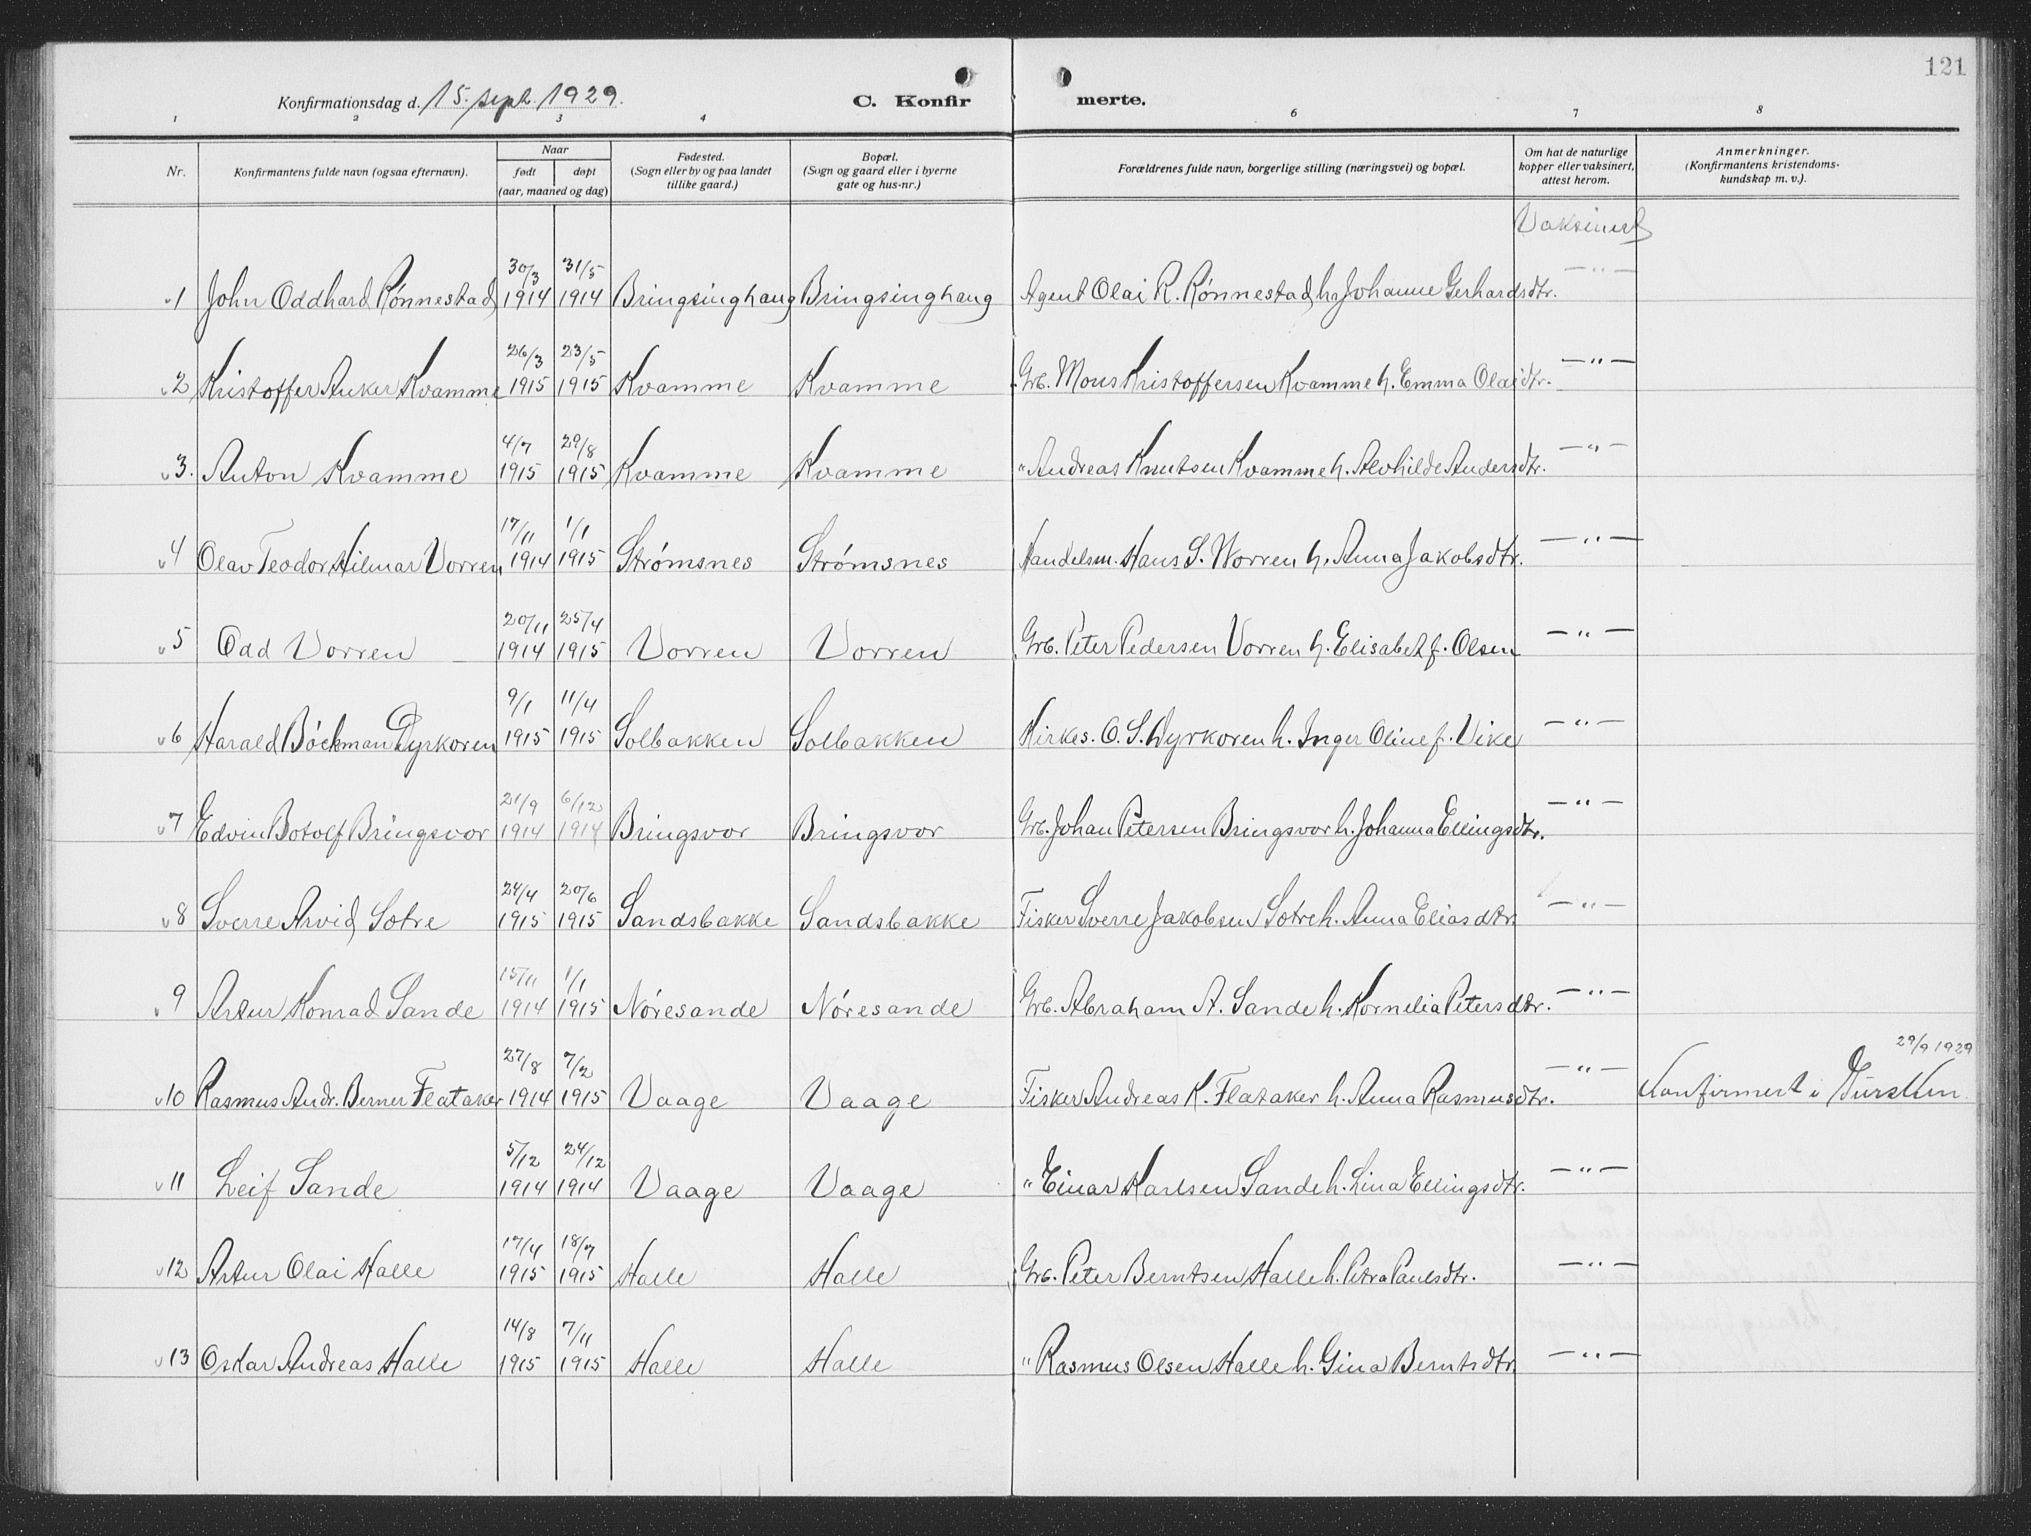 121
Konfirmationsdag d. 15. sept. 1929. C. Konfir merte.
1 2 3 4 6 7 8
Nr. Konfirmantens fulde navn (ogsaa efternavn). Naar født døpt (aar, maaned og dag) Fødested. (Sogn eller by og paa landet tillike gaard.) Bopæl. (Sogn og gaard eller i byerne gate og hus-nr.) Forældrenes fulde navn, borgerlige stilling (næringsvei) og bopæl. Om hat de naturlige kopper eller vaksinert, attest herom. Anmerkninger. (Konfirmantens kristendoms-kundskap m. v.).
Vaksinert
v1 John Oddhard Rønnestad 30/3 1914 31/5 1914 Bringsinghaug Bringsinghaug Agent Olai R. Rønnestad h. Johanne Gerhardsdtr. —"—
v2 Kristoffer Anker Kvamme 26/3 1915 23/5 1915 Kvamme Kvamme Grb. Mons Kristoffersen Kvamme h. Emma Olaidtr. —"—
v3. Anton Kvamme 4/7 1915 29/8 1915 Kvamme Kvamme " Andreas Knutsen Kvamme h. Alvhilde Andersdtr. —"—
v4 Olav Teodor Hilmar Vorren 17/11 1914 1/1 1915 Strømsnes Strømsnes Handelsm. Hans S. Worren h. Anna Jakobsdtr. —"—
v5 Odd Vorren 20/11 1914 25/4 1915 Vorren Vorren Grb. Peter Pedersen Vorren h. Elisabet f. Olsen —"—
v6 Harald Böckman Dyrkoren 9/1 1915 11/4 1915 Solbakken Solbakken Kirkes. O. S. Dyrkoren h. Inger Oline f. Vike —"—
v7 Edvin Botolf Bringsvor 21/9 1914 6/12 1914 Bringsvor Bringsvor Grb. Johan Petersen Bringsvor h. Johanna Ellingsdtr. —"—
v8 Sverre Arvid Sotre 24/4 1915 20/6 1915 Sandsbakke Sandsbakke Fisker Sverre Jakobsen Sotre h. Anna Eliasdtr. —"—
v9 Artur Konrad Sande 15/11 1914 1/1 1915 Nóresande Nóresande Grb. Abraham A. Sande h. Kornelia Petersdtr. —"—
v10 Rasmus Andr. Berner Flataker 27/8 1914 7/2 1915 Vaage Vaage Fisker Andreas K. Flataker h. Anna Rasmusdtr. —"— 29/9 1929 Konfirmert i
v11 Leif Sande 5/12 1914 24/12 1914 Vaage Vaage " Einar Karlsen Sande h. Lina Ellingsdtr. —"—
v12 Artur Olai Halle 17/4 1915 18/7 1915 Halle Halle Grb. Peter Berntsen Halle h. Petra Paulsdtr. —"—
v13 Oskar Andreas Halle 14/8 1915 7/11 1915 Halle Halle " Rasmus Olsen Halle h. Gina Berntsdtr. —"—